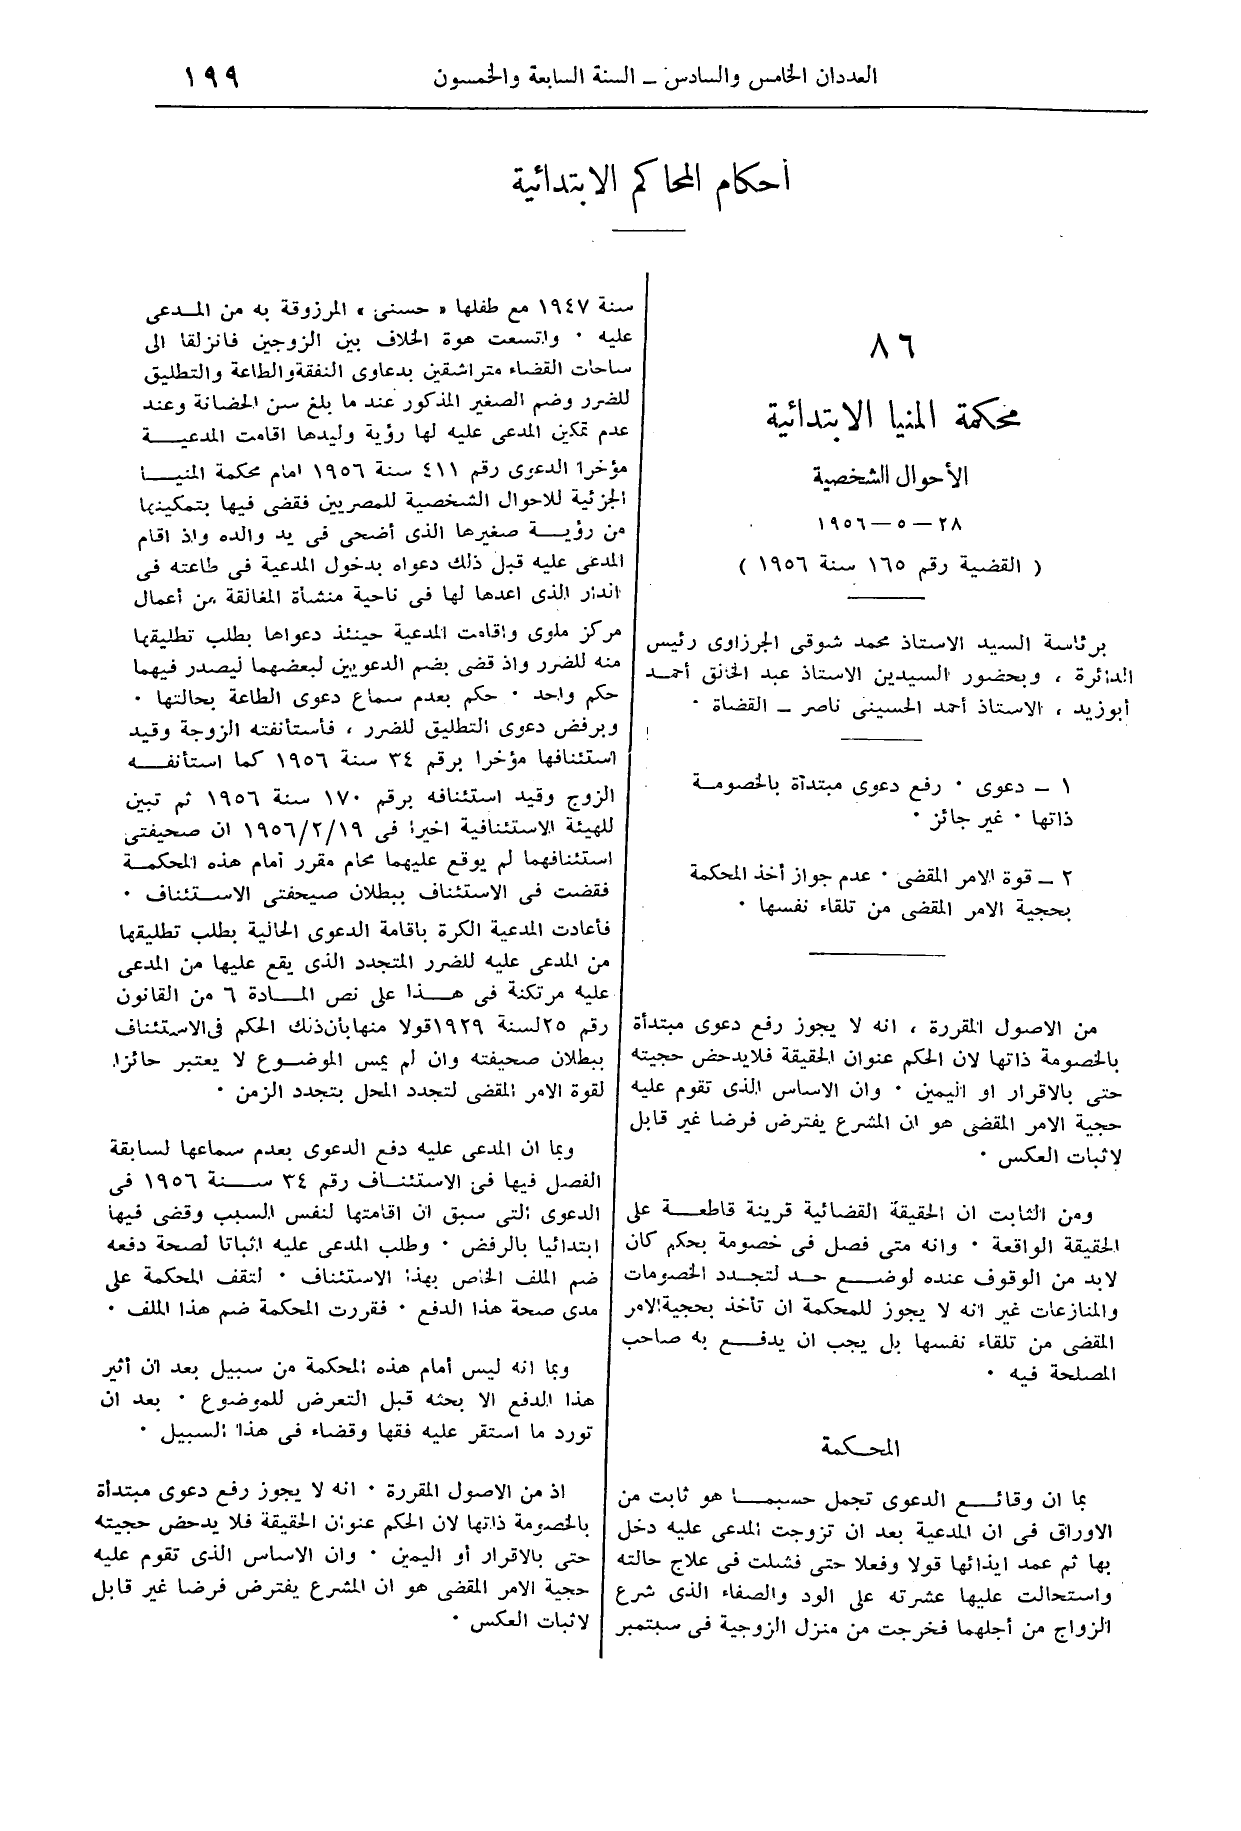 العددان الخامس والسادس ــ السنة السابعة والخمسون
١٩٩
أحكام المحاكم الابتدائية
٨٦
محكمة المنيا الابتدائية
الأحوال الشخصية
٢٨ – ٥ – ١٩٥٦
( القضية رقم ١٦٥ سنة ١٩٥٦ )
برئاسة السيد الاستاذ محمد شوقى الجرزاوى رئيس
الدائرة ، وبحضور السيدين الاستاذ عبد الخالق أحمد
أبوزيد ، الاستاذ أحمد الحسينى ناصر ــ القضاة ٠
١ ــ دعوى ٠ رفع دعوى مبتدأة بالخصومة
ذاتها ٠ غير جائز ٠
٢ ــ قوة الامر المقضى ٠ عدم جواز أخذ المحكمة
بحجية الامر المقضى من تلقاء نفسها ٠
من الاصول المقررة ، انه لا يجوز رفع دعوى مبتدأة
بالخصومة ذاتها لان الحكم عنوان الحقيقة فلايدحض حجيته
حتى بالاقرار او اليمين ٠ وان الاساس الذى تقوم عليه
حجية الامر المقضى هو ان المشرع يفترض فرضا غير قابل
لاثبات العكس ٠
ومن الثابت ان الحقيقة القضائية قرينة قاطعة على
الحقيقة الواقعة ٠ وانه متى فصل فى خصومة بحكم كان
لابد من الوقوف عنده لوضع حد لتجدد الخصومات
والمنازعات غير انه لا يجوز للمحكمة ان تأخذ بحجيةالامر
المقضى من تلقاء نفسها بل يجب ان يدفع به صاحب
المصلحة فيه ٠
المحكمة
بما ان وقائع الدعوى تجمل حسبما هو ثابت من
الاوراق فى ان المدعية بعد ان تزوجت المدعى عليه دخل
بها ثم عمد ايذائها قولا وفعلا حتى فشلت فى علاج حالته
واستحالت عليها عشرته على الود والصفاء الذى شرع
الزواج من أجلهما فخرجت من منزل الزوجية فى سبتمبر
سنة ١٩٤٧ مع طفلها « حسنى » المرزوقة به من المدعى
عليه ٠ واتسعت هوة الخلاف بين الزوجين فانزلقا الى
ساحات القضاء متراشقين بدعاوى النفقةوالطاعة والتطليق
للضرر وضم الصغير المذكور عند ما بلغ سن الحضانة وعند
عدم تمكين المدعى عليه لها رؤية وليدها اقامت المدعية
مؤخرا الدعوى رقم ٤١١ سنة ١٩٥٦ امام محكمة المنيا
الجزئية للاحوال الشخصية للمصريين فقضى فيها بتمكينها
من رؤية صغيرها الذى أضحى فى يد والده واذ اقام
المدعى عليه قبل ذلك دعواه بدخول المدعية فى طاعته فى
اندار الذى اعدها لها فى ناحية منشأة المغالقة من أعمال
مركز ملوى واقامت المدعية حينئذ دعواها بطلب تطليقها
منه للضرر واذ قضى بضم الدعويين لبعضهما ليصدر فيهما
حكم واحد ٠ حكم بعدم سماع دعوى الطاعة بحالتها ٠
وبرفض دعوى التطليق للضرر ، فأستأنفته الزوجة وقيد
استئنافها مؤخرا برقم ٣٤ سنة ١٩٥٦ كما استأنفه
الزوج وقيد استئنافه برقم ١٧٠ سنة ١٩٥٦ ثم تبين
للهيئة الاستئنافية اخيرا فى ١٩٥٦/٢/١٩ ان صحيفتى
استئنافهما لم يوقع عليهما محام مقرر أمام هذه المحكمة
فقضت فى الاستئناف ببطلان صيحفتى الاستئناف ٠
فأعادت المدعية الكرة باقامة الدعوى الحالية بطلب تطليقها
من المدعى عليه للضرر المتجدد الذى يقع عليها من المدعى
عليه مرتكنة فى هذا على نص المادة ٦ من القانون
رقم ٢٥لسنة ١٩٢٩قولا منهابأن‌ذلك الحكم فى‌الاستئناف
ببطلان صحيفته وان لم يمس الموضوع لا يعتبر حائزا
لقوة الامر المقضى لتجدد المحل بتجدد الزمن ٠
وبما ان المدعى عليه دفع الدعوى بعدم سماعها لسابقة
الفصل فيها فى الاستئناف رقم ٣٤ سنة ١٩٥٦ فى
الدعوى التى سبق ان اقامتها لنفس السبب وقضى فيها
ابتدائيا بالرفض ٠ وطلب المدعى عليه اثباتا لصحة دفعه
ضم الملف الخاص بهذا الاستئناف ٠ لتقف المحكمة على
مدى صحة هذا الدفع ٠ فقررت المحكمة ضم هذا الملف ٠
وبما انه ليس أمام هذه المحكمة من سبيل بعد ان أثير
هذا الدفع الا بحثه قبل التعرض للموضوع ٠ بعد ان
تورد ما استقر عليه فقها وقضاء فى هذا السبيل ٠
اذ من الاصول المقررة ٠ انه لا يجوز رفع دعوى مبتدأة
بالخصومة ذاتها لان الحكم عنوان الحقيقة فلا يدحض حجيته
حتى بالاقرار أو اليمين ٠ وان الاساس الذى تقوم عليه
حجية الامر المقضى هو ان المشرع يفترض فرضا غير قابل
لاثبات العكس ٠